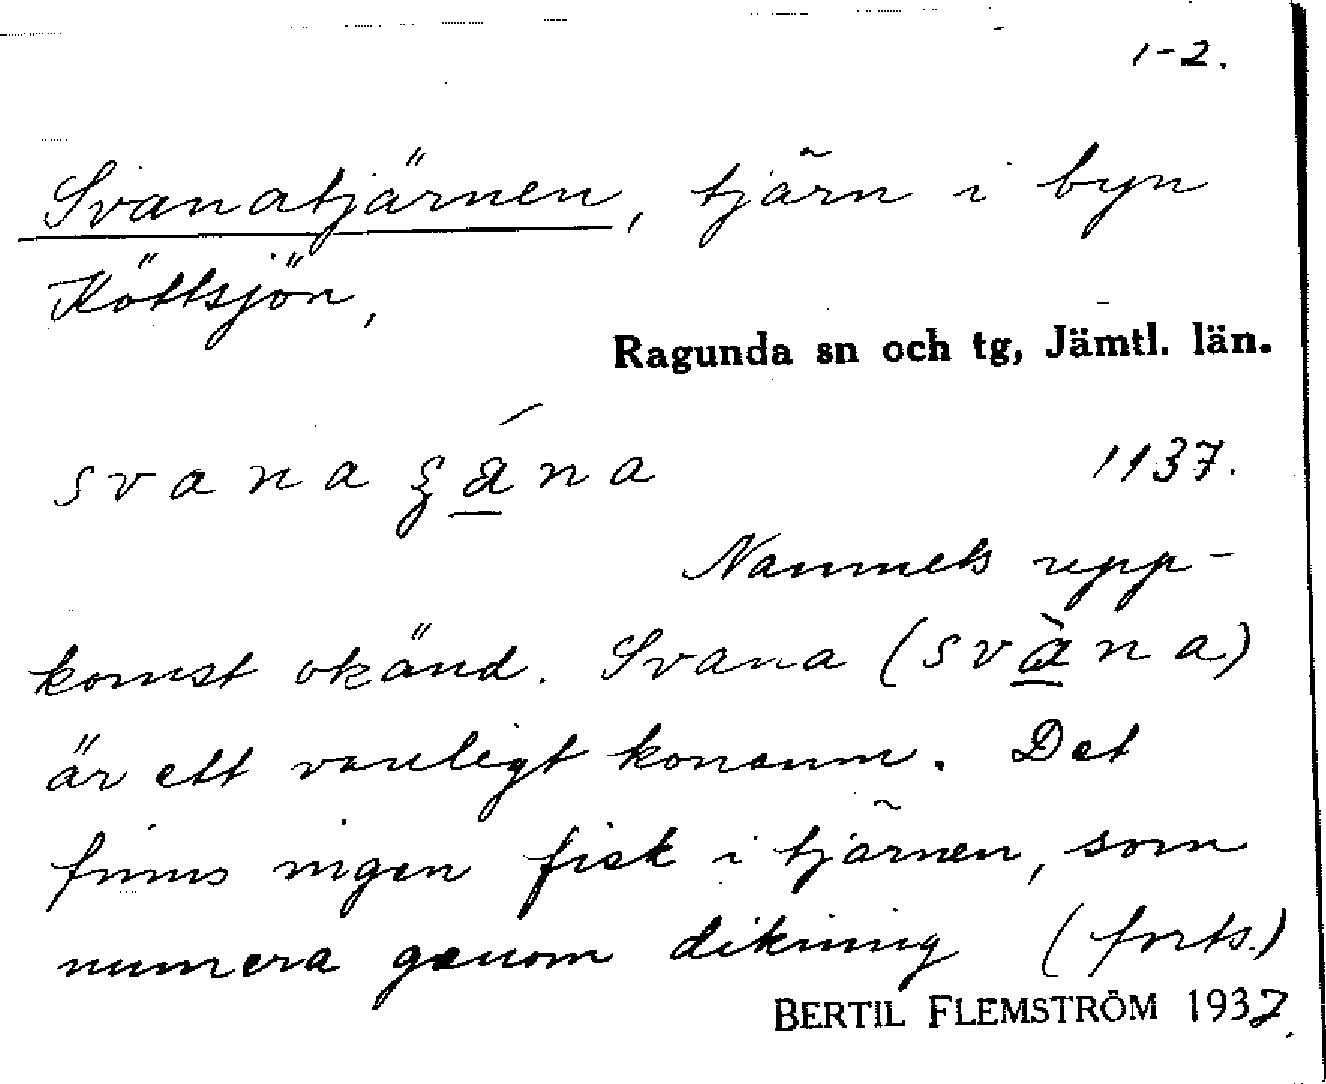 1-2.
Svanatjärnen, tjärn i byn
Köttsjön,
Ragunda sn och tg, Jämtl. län.
1137.
Namnets upp-
komst okänd. Svana (svàna)
är ett vanligt konamn. Det
finns ingen fisk i tjärnen, som
numera genom dikning (forts.)
BERTIL FLEMSTRÖM 1937.